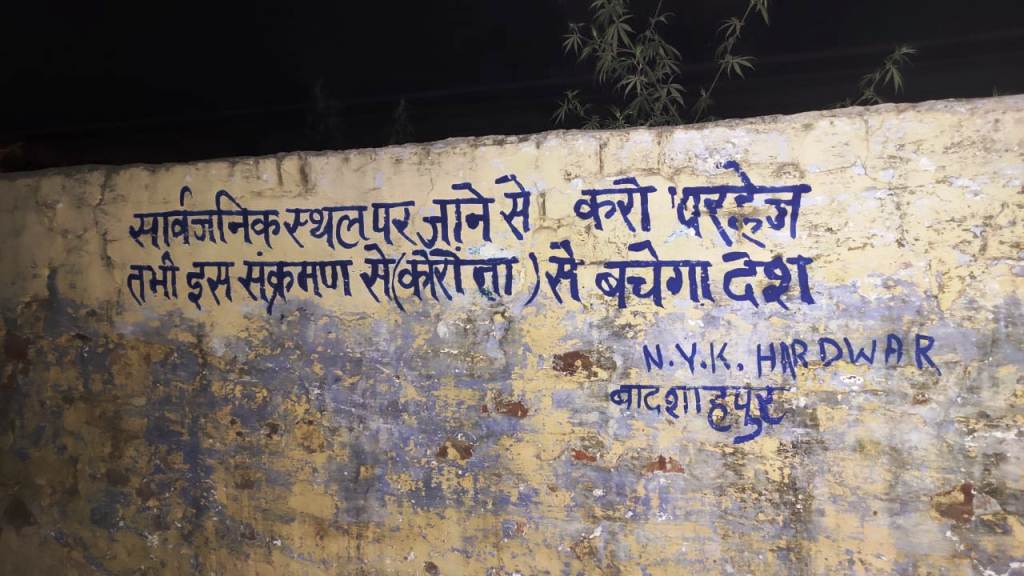 सार्वजनिक स्थल पर जाने से करो परहेज
तभी इस संक्रमण से (कोरोना) से बचेगा देश
N.Y.K. HARDWAR
बादशाहपुर